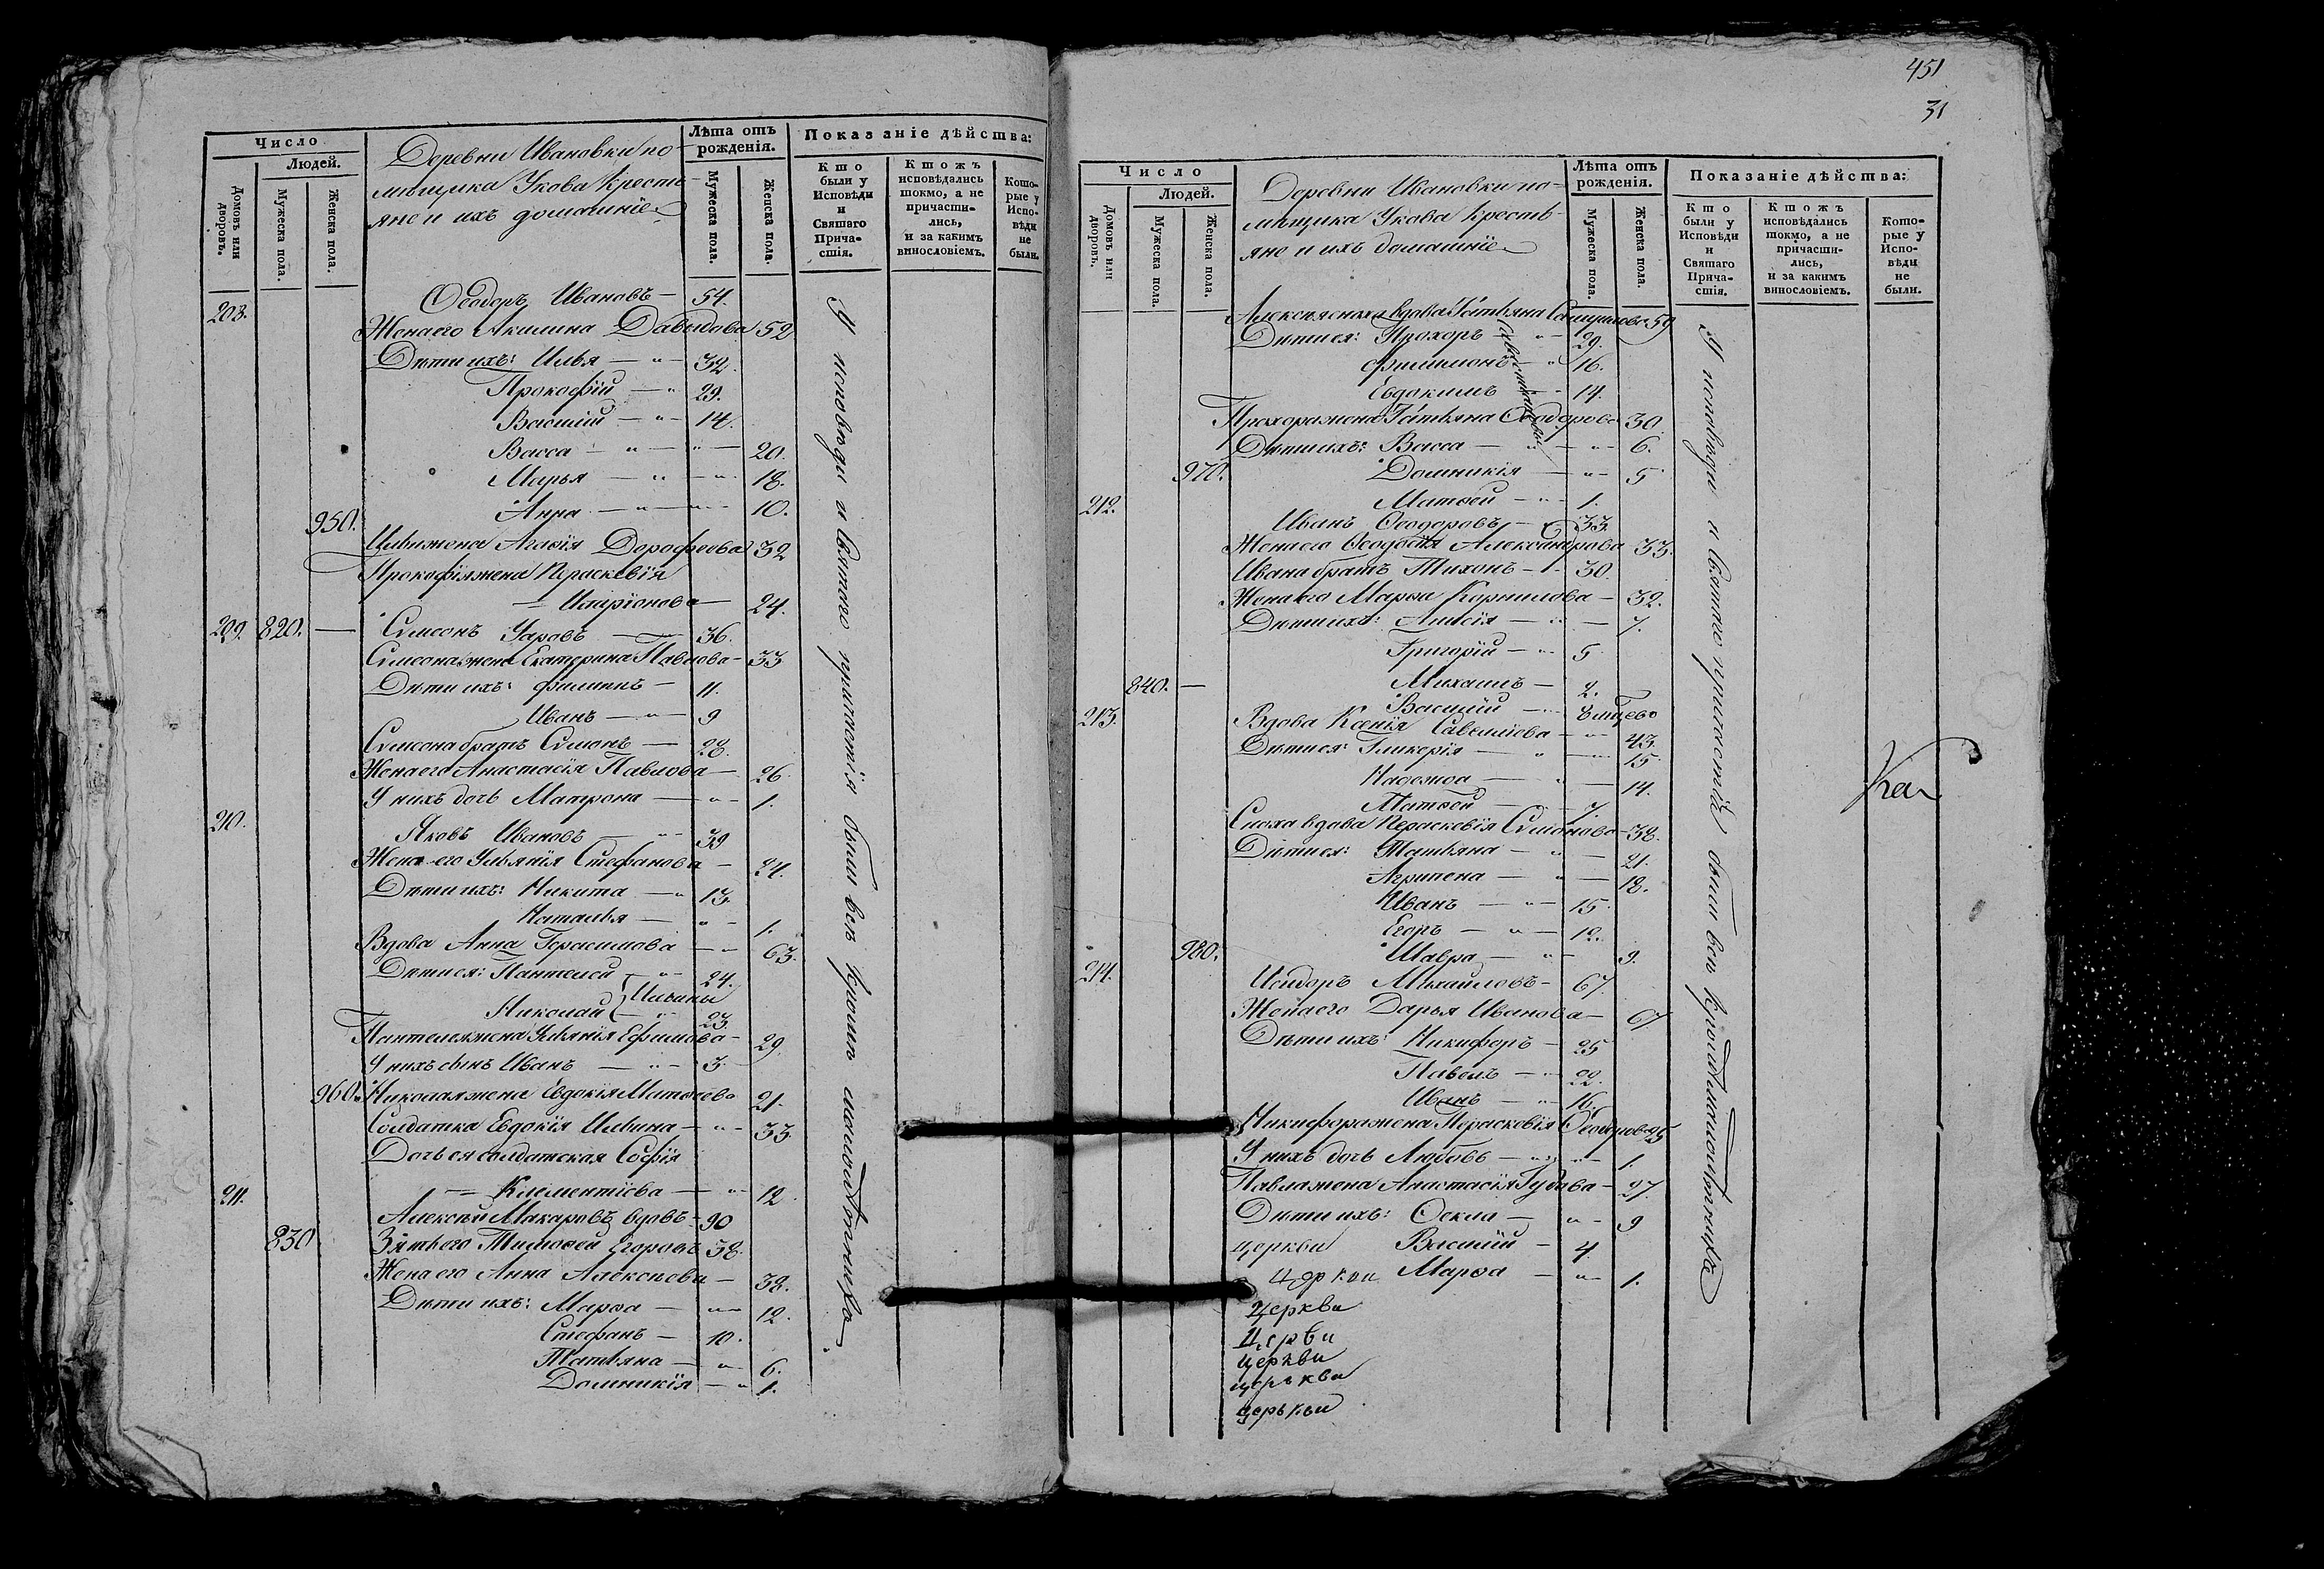 Число
Людей.
Домовъ или дворовъ.
Мужеска пола.
Женска пола.
Деревни Ивановки по-
мѣщика Укова Кресть-
яне и ихъ домашніе
Лѣта отъ рожденія.
Мужеска пола.
Женска пола.
Показаніе дѣйства:
Кто были у Исповѣди и Святаго Прича-стія.
Ктожъ исповѣдались токмо, а не причасти-лись, и за какимъ винословіемъ.
Кото-рые у Испо-вѣди не были.
208. Ѳеодоръ Ивановъ — 54.
Жена его Акилина Давыдова 52
Дѣти ихъ: Илья — " — 32.
Прокофій — " 29.
Василій — " — 14.
Васса — " — " — 20.
Марья — " — " — 18.
950. Анна — " — " — 10.
Ильи жена Агафія Дорофеева 32
Прокофія жена Параскевія
— Иларіонова — 24.
209. 820. — Симеонъ Уаровъ — 36.
Симеона жена Екатерина Павлова — 33
Дѣти ихъ: Филиппъ — 11.
Иванъ — " — 9
Симеона братъ Симонъ — 28.
Жена его Анастасія Павлова — 26.
У нихъ дочь Матрона — " — 1.
210. Яковъ Ивановъ — " 39
Жена его Ульянія Стефанова — 34.
Дѣти ихъ: Никита — " 13.
Наталья — " — 1.
Вдова Анна Герасимова — " 63.
Дѣти ея: Пантелей — " 24.
Ильины
Николай — " 23.
Пантелея жена Ульянія Ефимова — 29.
У нихъ сынъ Иванъ — " — 3.
960. Николая жена Евдокія Матѳеева 21.
Солдатка Евдокія Ильина — " — 33.
Дочь ея солдатская Софія
— Клементіева — " 12.
211. Алексѣй Макаровъ вдовъ — 90
830 Зять его Тимоѳей Егоровъ 38.
Жена его Анна Алексѣева — 38.
Дѣти ихъ: Марѳа — " — 12.
Стефанъ — 10.
Татьяна — " — 6.
Домникія — " 1.
У исповѣди и святаго причастія были всѣ кромѣ малолѣтнихъ
451
31
Число
Людей.
Домовъ или дворовъ.
Мужеска пола.
Женска пола.
Деревни Ивановки по-
мѣщика Укова Кресть-
яне и ихъ домашніе
Лѣта отъ рожденія.
Мужеска пола.
Женска пола.
Показаніе дѣйства:
Кто были у Исповѣди и Святаго Прича-стія.
Ктожъ исповѣдались токмо, а не причасти-лись, и за какимъ винословіемъ.
Кото-рые у Испо-вѣди не были.
вдова Татьяна 59
Дѣти ея: Прохоръ — " — 29.
Филимонъ — " 16.
Евдокимъ — 14.
Прохора жена Татьяна Ѳеодорова 30.
Дѣти ихъ: Васса — " — " — 6.
970. Домникія — " — 5
Матѳей — " — 1.
212. Иванъ Ѳеодоровъ — 33.
Жена его Ѳеодосія Александрова 33.
Ивана братъ Тихонъ — 30.
Жена его Марѳа Корнилова — 32.
Дѣти ихъ: Анисія — " — 7.
Григорій — " 5.
840. — Михаилъ — 2.
Василій — "
213. Вдова Ксенія Савеліева — " 43.
Дѣти ея: Гликерія — " — 15.
Надежда — " — 14.
Матѳей — 7.
Сноха вдова Параскевія Симонова — 38.
Дѣти ея: Татьяна — " — 21.
Агрипена — " — 18.
Иванъ — " — 15.
Егоръ — " — 12.
980. Мавра — " — 9.
214. Исидоръ Михайловъ — 67.
Жена его Дарья Иванова — 67
Дѣти ихъ: Никифоръ — 25
Павелъ — " 22.
Иванъ — " 16.
Никифора жена Параскевія Ѳеодорова 25
У нихъ дочь Любовь — " — 1.
Павла жена Анастасія — 27
Дѣти ихъ: Ѳекла — " — 9
церкви Василій — 4.
церкви Марѳа — " — 1.
церкви
Церви
церкви
церькви
церькви
У исповѣди и святаго причастія были всѣ кромѣ малолѣтнихъ